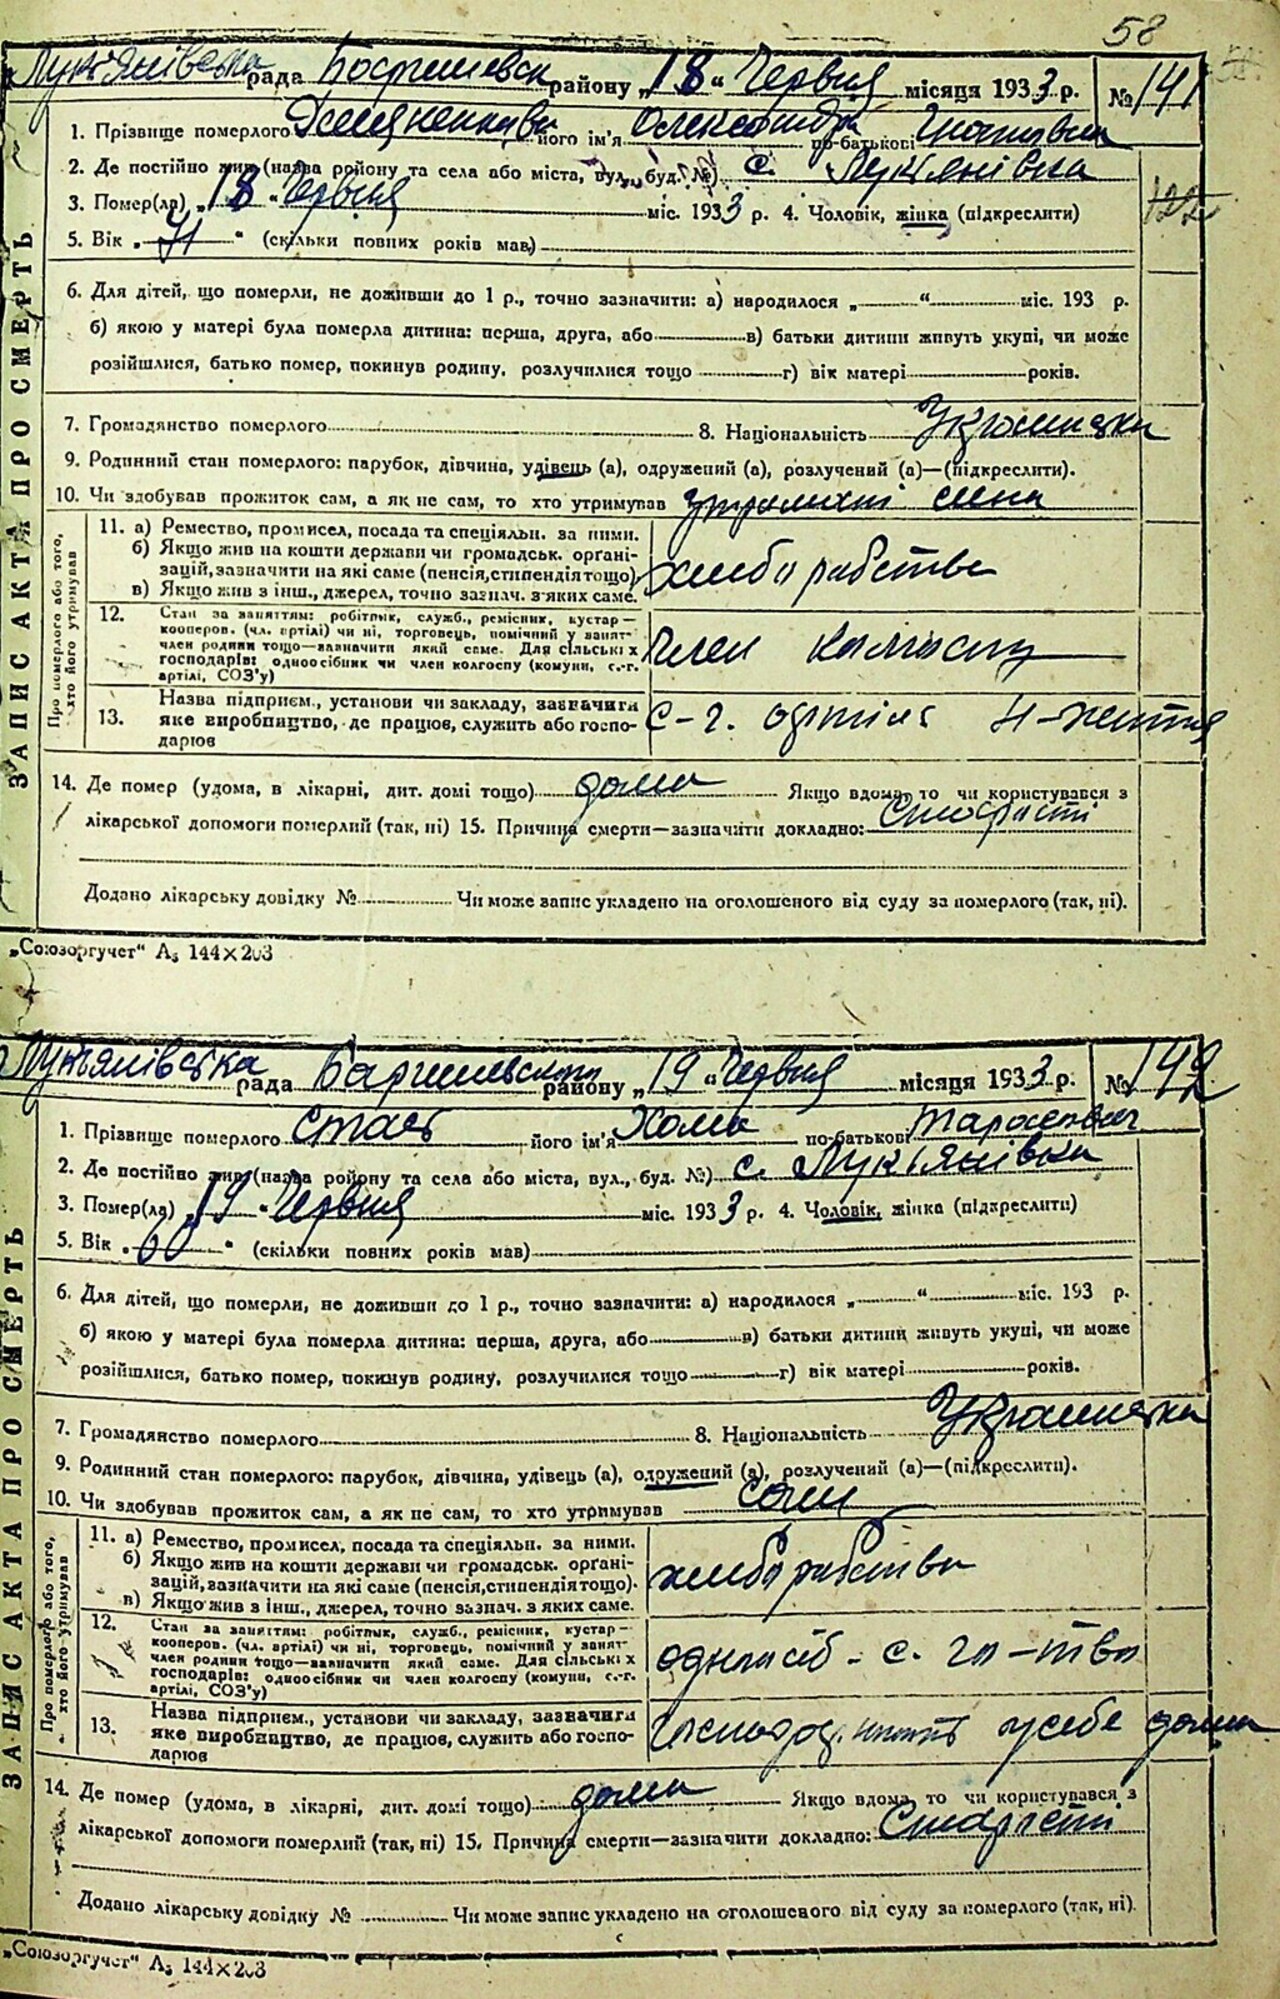 58
Лук'янівська рада Баришевськ району „18“ Червня місяця 1933 р. № 141
1. Прізвище померлого його ім'я Олександра по-батькові
2. Де постійно жив (назва району та села або міста, вул., буд. №) с. Лук'янівка
122
3. Помер(ла) „18“ Червня міс. 1933 р. 4. Чоловік, жінка (підкреслити)
5. Вік „71“ (скільки повних років мав)
6. Для дітей, що померли, не доживши до 1 р., точно зазначити: а) народилося „ “ міс. 193 р.
б) якою у матері була померла дитина: перша, друга, або в) батьки дитини живуть укупі, чи може
розійшлися, батько помер, покинув родину, розлучилися тощо г) вік матері років.
7. Громадянство померлого 8. Національність Українка
9. Родинний стан померлого: парубок, дівчина, удівець (а), одружений (а), розлучений (а)—(підкреслити).
10. Чи здобував прожиток сам, а як не сам, то хто утримував сина
ЗАПИС АКТА ПРО СМЕРТЬ
Про померлого або того, хто його утримував
11. а) Ремество, промисел, посада та спеціяльн. за ними.
б) Якщо жив на кошти держави чи громадськ. органі-
зацій, зазначити на які саме (пенсія, стипендія тощо)
в) Якщо жив з інш., джерел, точно зазнач. з яких саме.
хлеборабство
12. Стан за заняттям: робітник, служб., ремісник, кустар—
кооперов. (чл. артілі) чи ні, торговець, помічний у занят-
член родини тощо—зазначити який саме. Для сільських
господарів: одноосібник чи член колгоспу (комуни, с.-г.
артілі, СОЗ'у)
член колгоспу
13. Назва підприєм., установи чи закладу, зазначити
яке виробництво, де працюв, служить або госпо-
дарюв
с-г. артіль Н-життя
14. Де помер (удома, в лікарні, дит. домі тощо) дома Якщо вдома, то чи користувався з
лікарської допомоги померлий (так, ні) 15. Причина смерти—зазначити докладно: Старасті
Додано лікарську довідку № Чи може запис укладено на оголошеного від суду за померлого (так, ні).
„Союзоргучет“ А₅ 144×203
Лук'янівська рада Баришевського району „19“ Червня місяця 1933 р. № 142
1. Прізвище померлого Стась його ім'я Хома по-батькові Тарасович
2. Де постійно жив (назва району та села або міста, вул., буд. №) с. Лук'янівка
3. Помер(ла) „19“ Червня міс. 1933 р. 4. Чоловік, жінка (підкреслити)
5. Вік „60“ (скільки повних років мав)
6. Для дітей, що померли, не доживши до 1 р., точно зазначити: а) народилося „ “ міс. 193 р.
б) якою у матері була померла дитина: перша, друга, або в) батьки дитини живуть укупі, чи може
розійшлися, батько помер, покинув родину, розлучилися тощо г) вік матері років.
7. Громадянство померлого 8. Національність Українка
9. Родинний стан померлого: парубок, дівчина, удівець (а), одружений (а), розлучений (а)—(підкреслити).
10. Чи здобував прожиток сам, а як не сам, то хто утримував сам
ЗАПИС АКТА ПРО СМЕРТЬ
Про померлого або того, хто його утримував
11. а) Ремество, промисел, посада та спеціяльн. за ними.
б) Якщо жив на кошти держави чи громадськ. органі-
зацій, зазначити на які саме (пенсія, стипендія тощо).
в) Якщо жив з інш., джерел, точно зазнач. з яких саме.
хлеборабство
12. Стан за заняттям: робітник, служб., ремісник, кустар—
кооперов. (чл. артілі) чи ні, торговець, помічний у занят-
член родини тощо—зазначити який саме. Для сільських
господарів: одноосібник чи член колгоспу (комуни, с.-г.
артілі, СОЗ'у)
одноосіб - с. го-тво
13. Назва підприєм., установи чи закладу, зазначити
яке виробництво, де працюв, служить або госпо-
дарюв
у себе дома
14. Де помер (удома, в лікарні, дит. домі тощо) дома Якщо вдома, то чи користувався з
лікарської допомоги померлий (так, ні) 15. Причина смерти—зазначити докладно: Старасті
Додано лікарську довідку № Чи може запис укладено на оголошеного від суду за померлого (так, ні).
„Союзоргучет“ А₅ 144×203